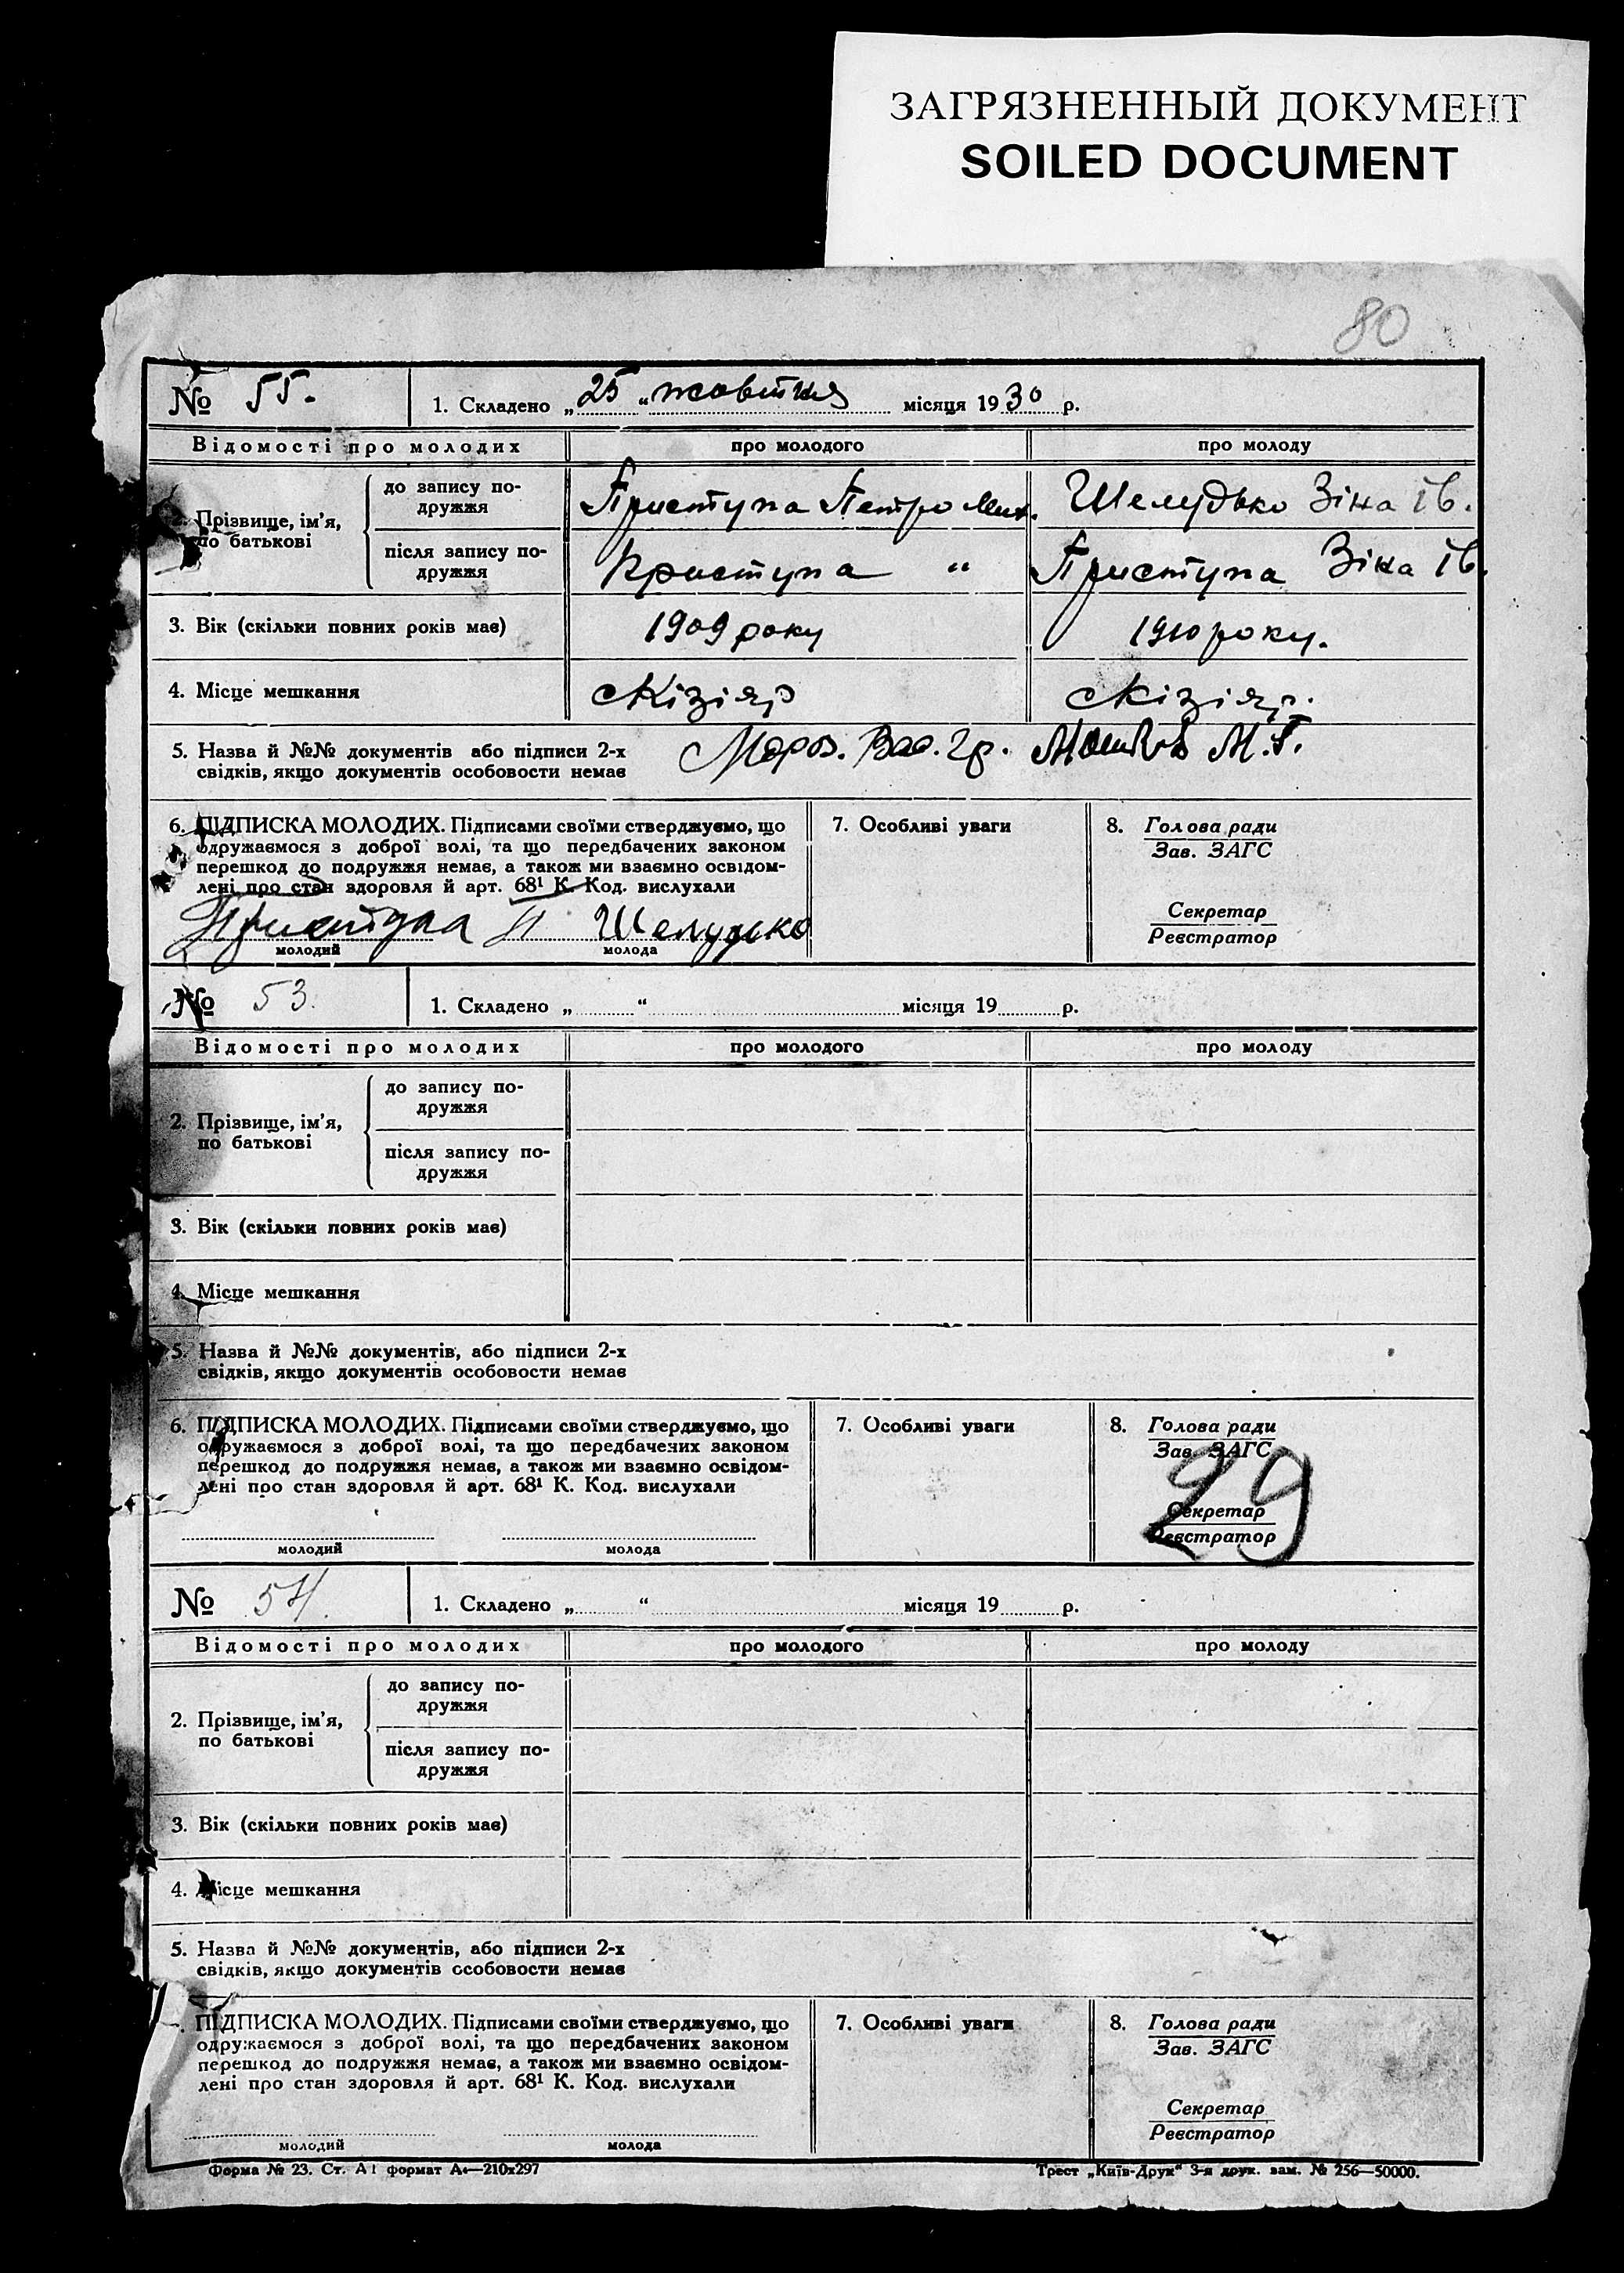 ЗАГРЯЗНЕННЫЙ ДОКУМЕНТ
SOILED DOCUMENT
80
№ 55.
1. Складено „25“ жовтня місяця 1930 р.
Відомості про молодих
про молодого
про молоду
Прізвище, ім'я,
по батькові
до запису по-
дружжя
Приступа Петро Мих.
Шелудько Зіна Ів.
після запису по-
дружжя
Приступа "
Приступа Зіна Ів.
3. Вік (скільки повних років має)
1909 року
1910 року.
4. Місце мешкання
Кізіяр
Кізіяр.
5. Назва й №№ документів або підписи 2-х
свідків, якщо документів особовости немає
Мороз. Вас. Гр.
М.
6. ПІДПИСКА МОЛОДИХ. Підписами своїми стверджуємо, що
одружаємося з доброї волі, та що передбачених законом
перешкод до подружжя немає, а також ми взаємно освідом-
лені про стан здоровля й арт. 68¹ К. Код. вислухали
Приступа П Шелудько
молодий
молода
7. Особливі уваги
8. Голова ради
Зав. ЗАГС
Секретар
Реєстратор
№ 53.
1. Складено „ “ місяця 19 р.
Відомості про молодих
про молодого
про молоду
2. Прізвище, ім'я,
по батькові
до запису по-
дружжя
після запису по-
дружжя
3. Вік (скільки повних років має)
4. Місце мешкання
5. Назва й №№ документів, або підписи 2-х
свідків, якщо документів особовости немає
6. ПІДПИСКА МОЛОДИХ. Підписами своїми стверджуємо, що
одружаємося з доброї волі, та що передбачених законом
перешкод до подружжя немає, а також ми взаємно освідом-
лені про стан здоровля й арт. 68¹ К. Код. вислухали
молодий
молода
7. Особливі уваги
8. Голова ради
Зав. ЗАГС
29
Секретар
Реєстратор
№ 54.
1. Складено „ “ місяця 19 р.
Відомості про молодих
про молодого
про молоду
2. Прізвище, ім'я,
по батькові
до запису по-
дружжя
після запису по-
дружжя
3. Вік (скільки повних років має)
4. Місце мешкання
5. Назва й №№ документів, або підписи 2-х
свідків, якщо документів особовости немає
ПІДПИСКА МОЛОДИХ. Підписами своїми стверджуємо, що
одружаємося з доброї волі, та що передбачених законом
перешкод до подружжя немає, а також ми взаємно освідом-
лені про стан здоровля й арт. 68¹ К. Код. вислухали
молодий
молода
7. Особливі уваги
8. Голова ради
Зав. ЗАГС
Секретар
Реєстратор
Форма № 23. Ст. А1 формат А4—210х297
Трест „Київ-Друк“ 3-я друк. зам. № 256—50000.